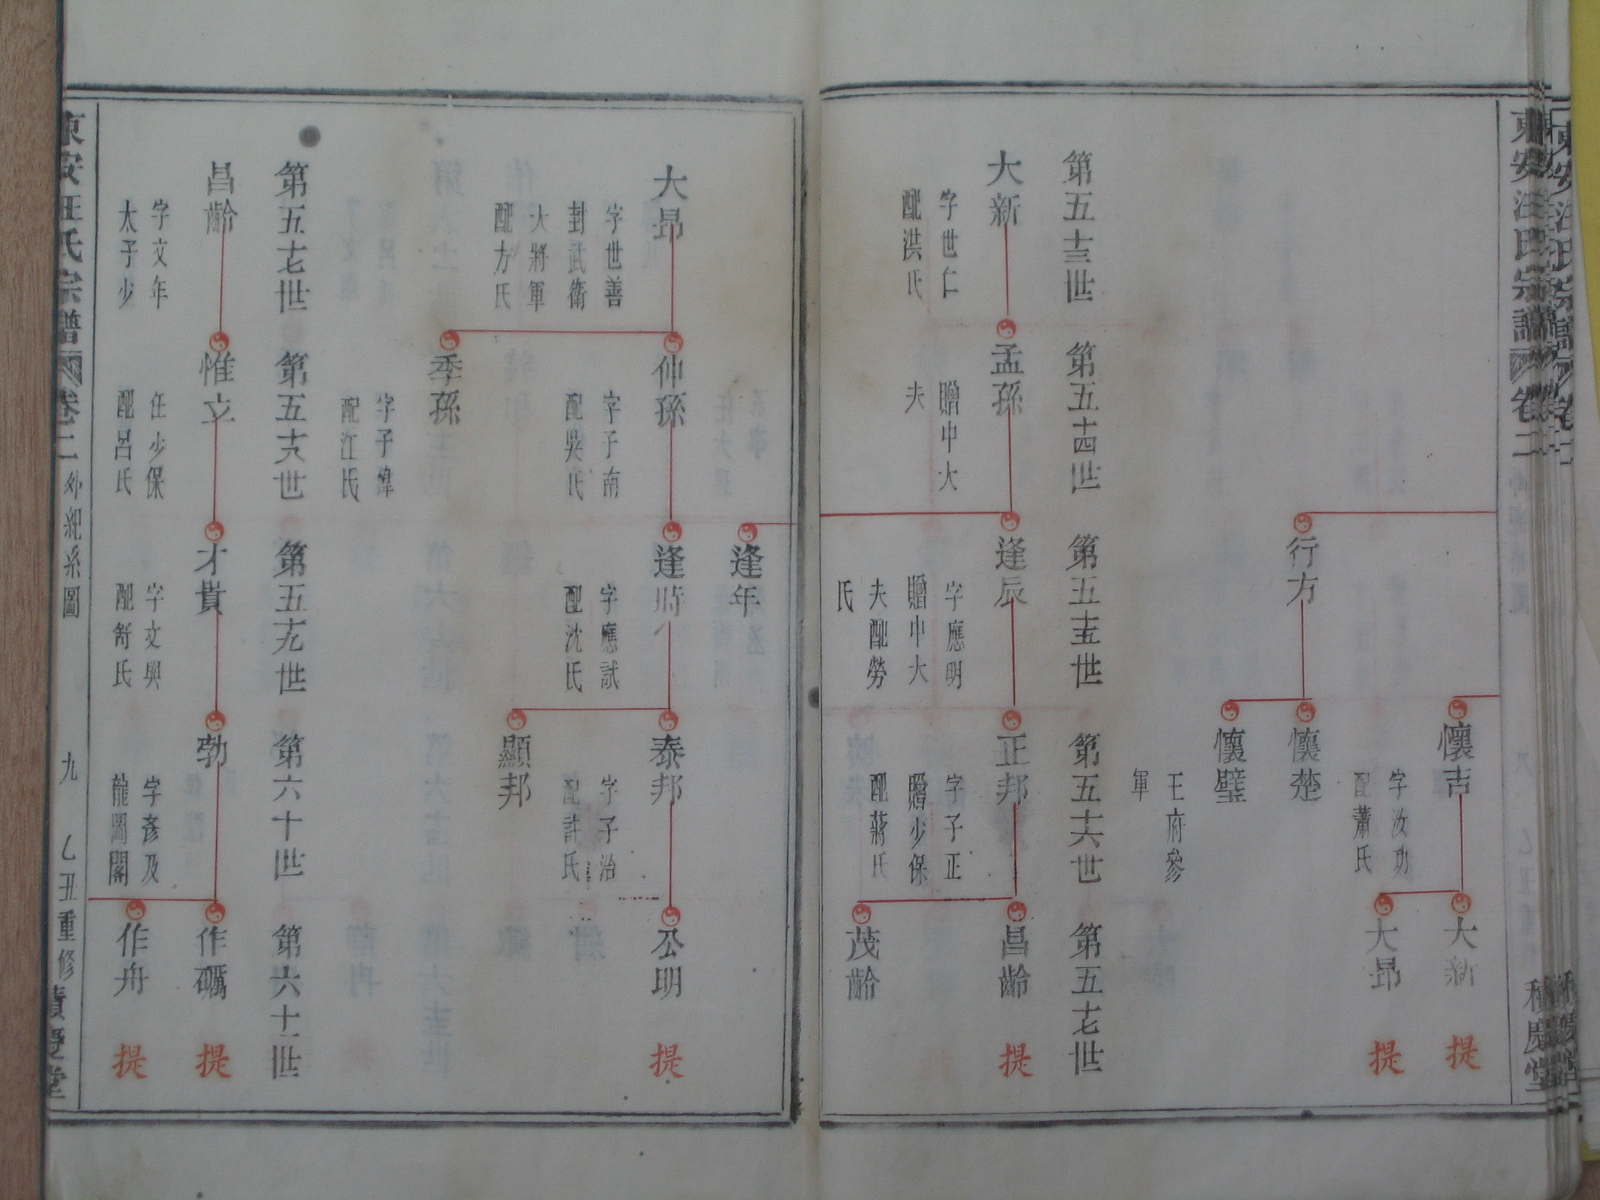 東安汪氏宗譜
卷二
積慶堂
懷吉
字汝功
配蕭氏
大新
提
大昂
提
行方
懷楚
懷璧
王府參
軍
第五十三世
第五十四世
第五十五世
第五十六世
第五十七世
大新
字世仁
配洪氏
孟孫
贈中大
夫
逢辰
字應明
贈中大
夫配勞
氏
正邦
字子正
贈少保
配蔣氏
昌齡
提
茂齡
逢年
大昂
字世善
封武衛
大將軍
配方氏
仲孫
字子南
配吳氏
逢時
字應試
配沈氏
泰邦
字子治
配許氏
公明
提
顯邦
季孫
字子偉
配江氏
第五十七世
第五十八世
第五十九世
第六十世
第六十一世
昌齡
字文年
太子少
惟立
任少保
配呂氏
才貴
字文興
配舒氏
勃
字彥及
龍圖閣
作礪
提
作舟
提
東安汪氏宗譜
卷二
外紀系圖
九
乙丑重修
積慶堂